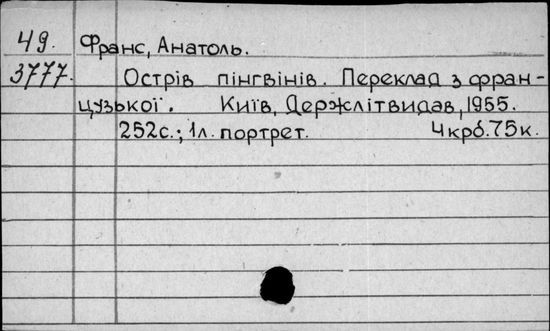 49. Франс, Анатоль.
3777. Острів пінгвінів. Переклад з фран-
цузької. Київ, Держлітвидав, 1955.
252с.; 1л. портрет. 4крб.75к.